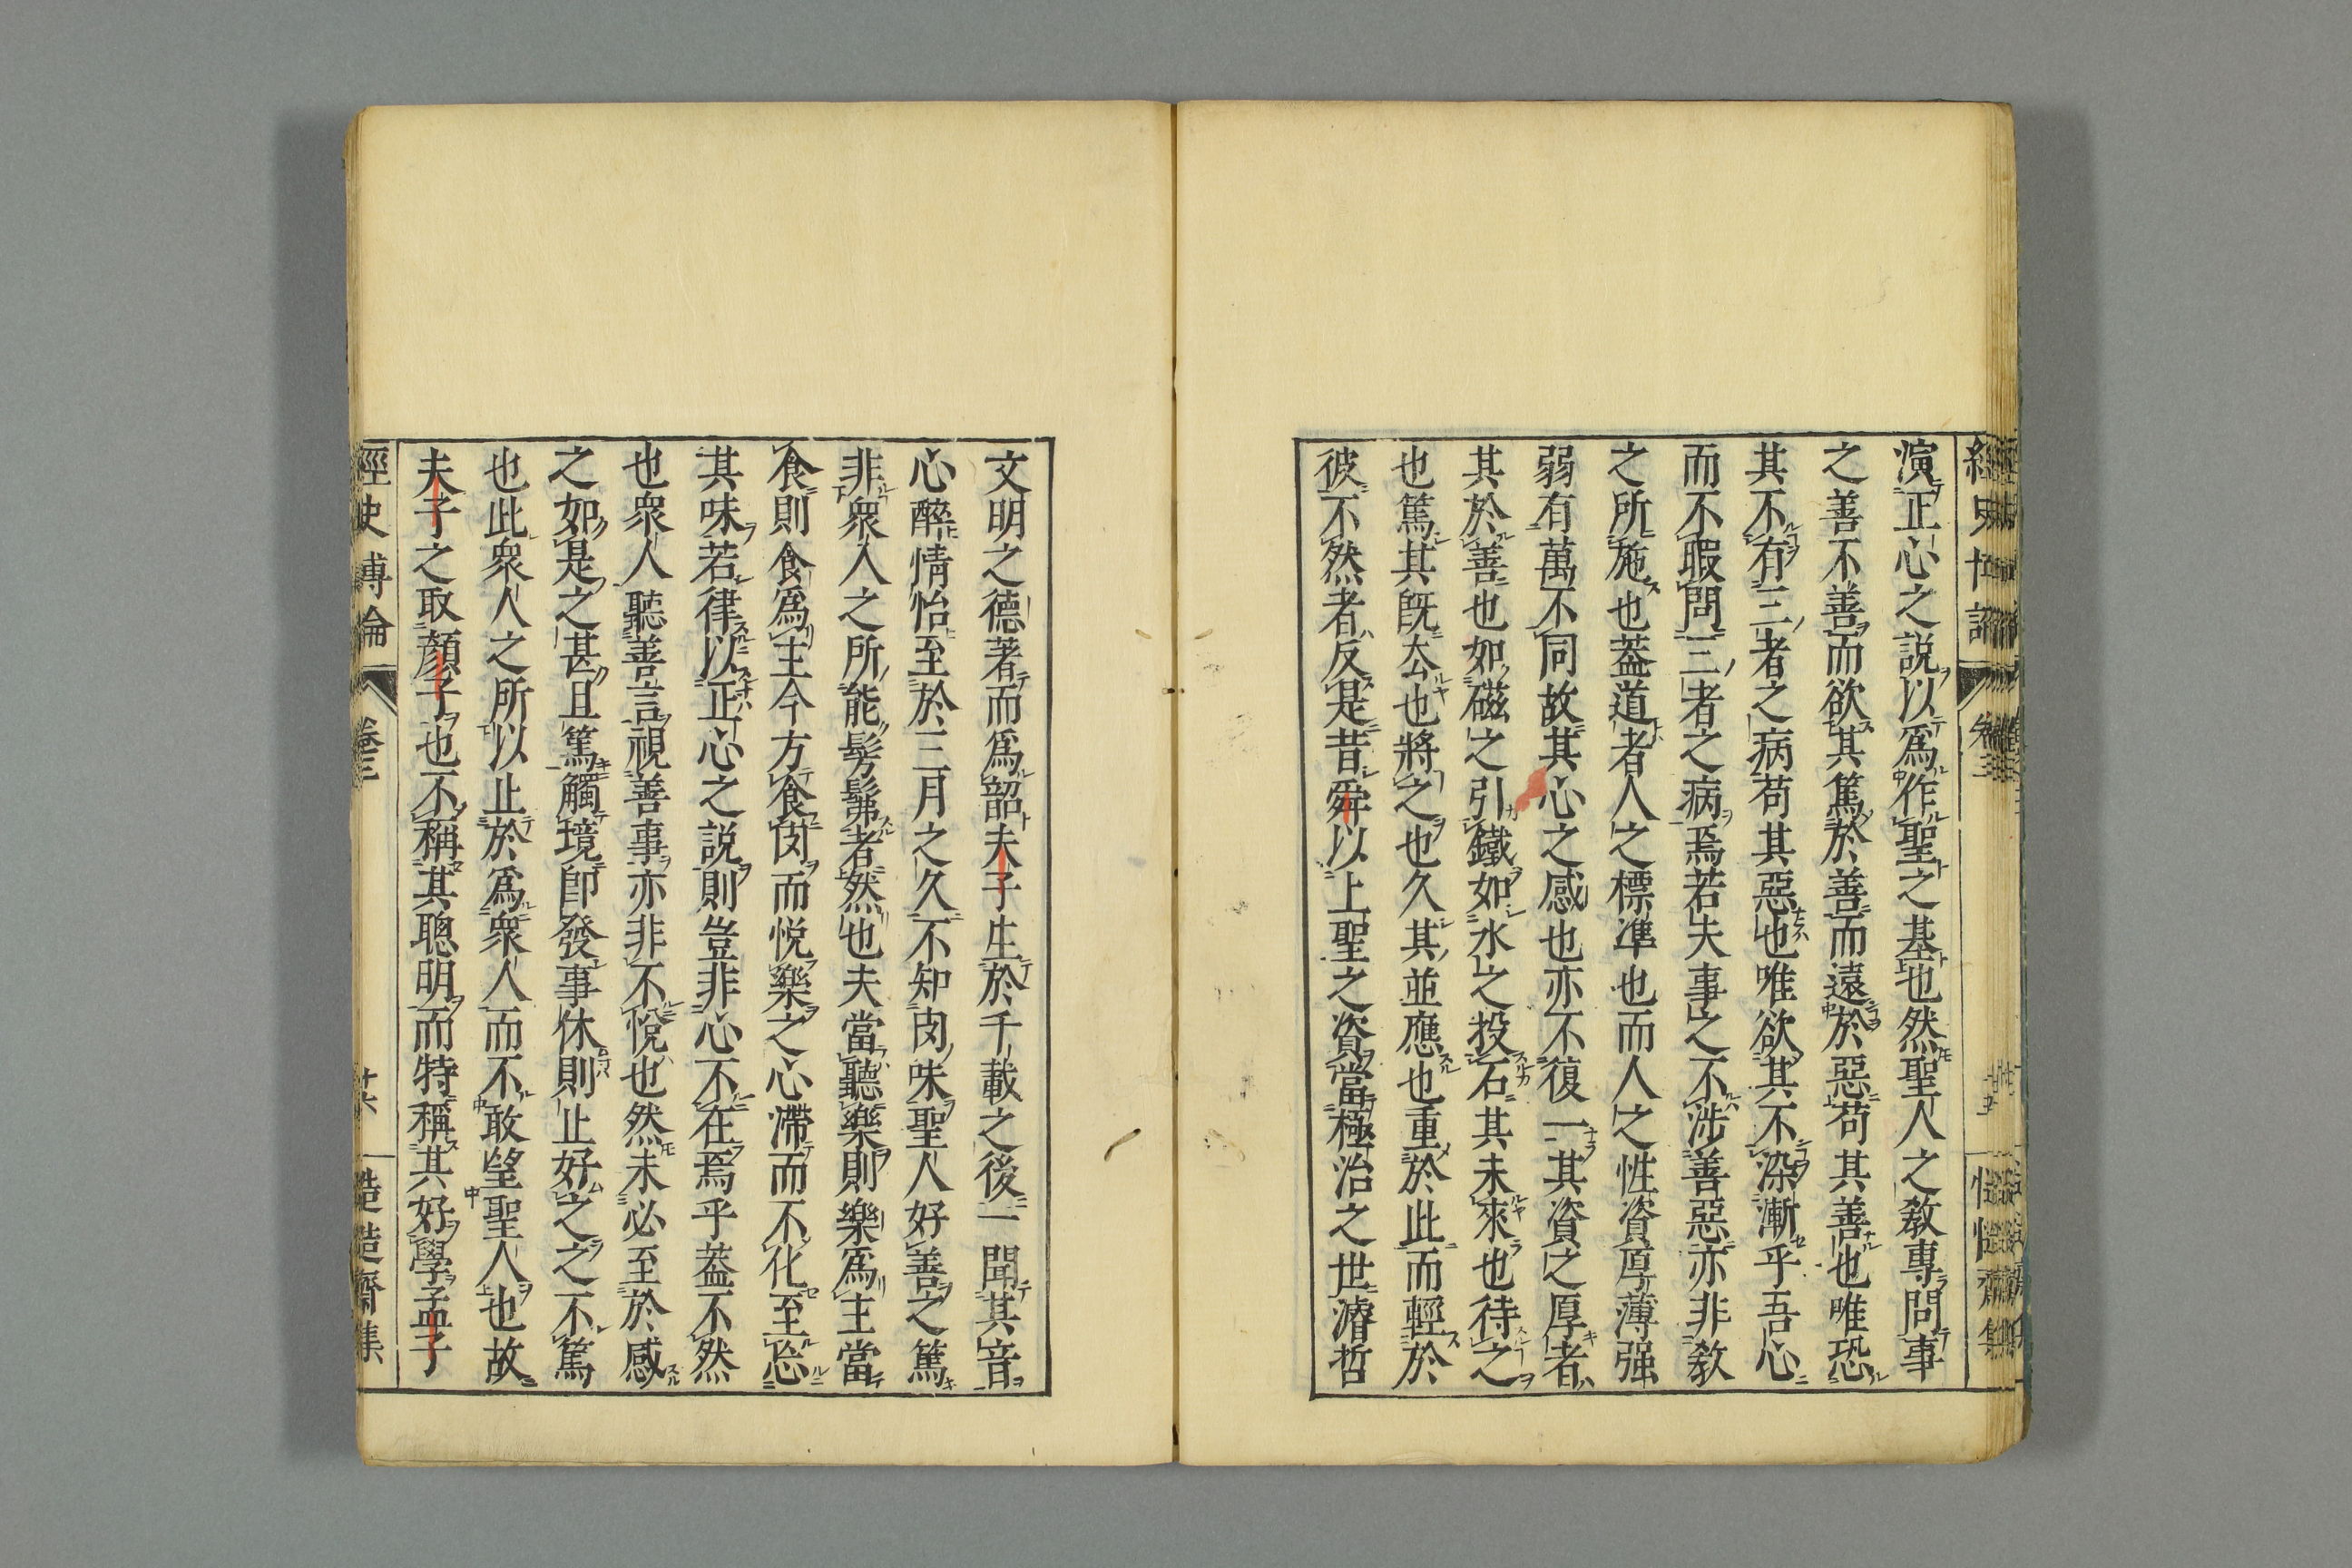 演正心之説以爲作聖之基也然聖人之敎專問事
之善不善而欲其篤於善而遠於惡苟其善也唯恐
其不有三者之病苟其惡也唯欲其不染漸乎吾心
而不暇問三者之病焉若夫事之不渉善惡亦非敎
之所施也葢道者人之標準也而人之性資厚薄强
弱有萬不同故其心之感也亦不復一其資之厚者
其於善也如磁之引鐵如水之投石其未來也待之
也篤其既去也將之也久其並應也重於此而輕於
彼不然者反是昔舜以上聖之資當極治之世濬哲
文明之德著而爲韶夫子生於千載之後一聞其音
心醉情怡至於三月之久不知肉味聖人好善之篤
非衆人之所能髣髴者然也夫當聽樂則樂爲主當
食則食爲主今方食肉而悦樂之心滯而不化至忘
其味若律以正心之説則豈非心不在焉乎葢不然
也衆人聽善言視善事亦非不悅也然未必至於感
之如是之甚且篤觸境卽發事休則止好之之不篤
也此衆人之所以止於爲衆人而不敢望聖人也故
夫子之取顏子也不稱其聰明而特稱其好學孟子
經史博論
卷三
十六
慥慥齋集